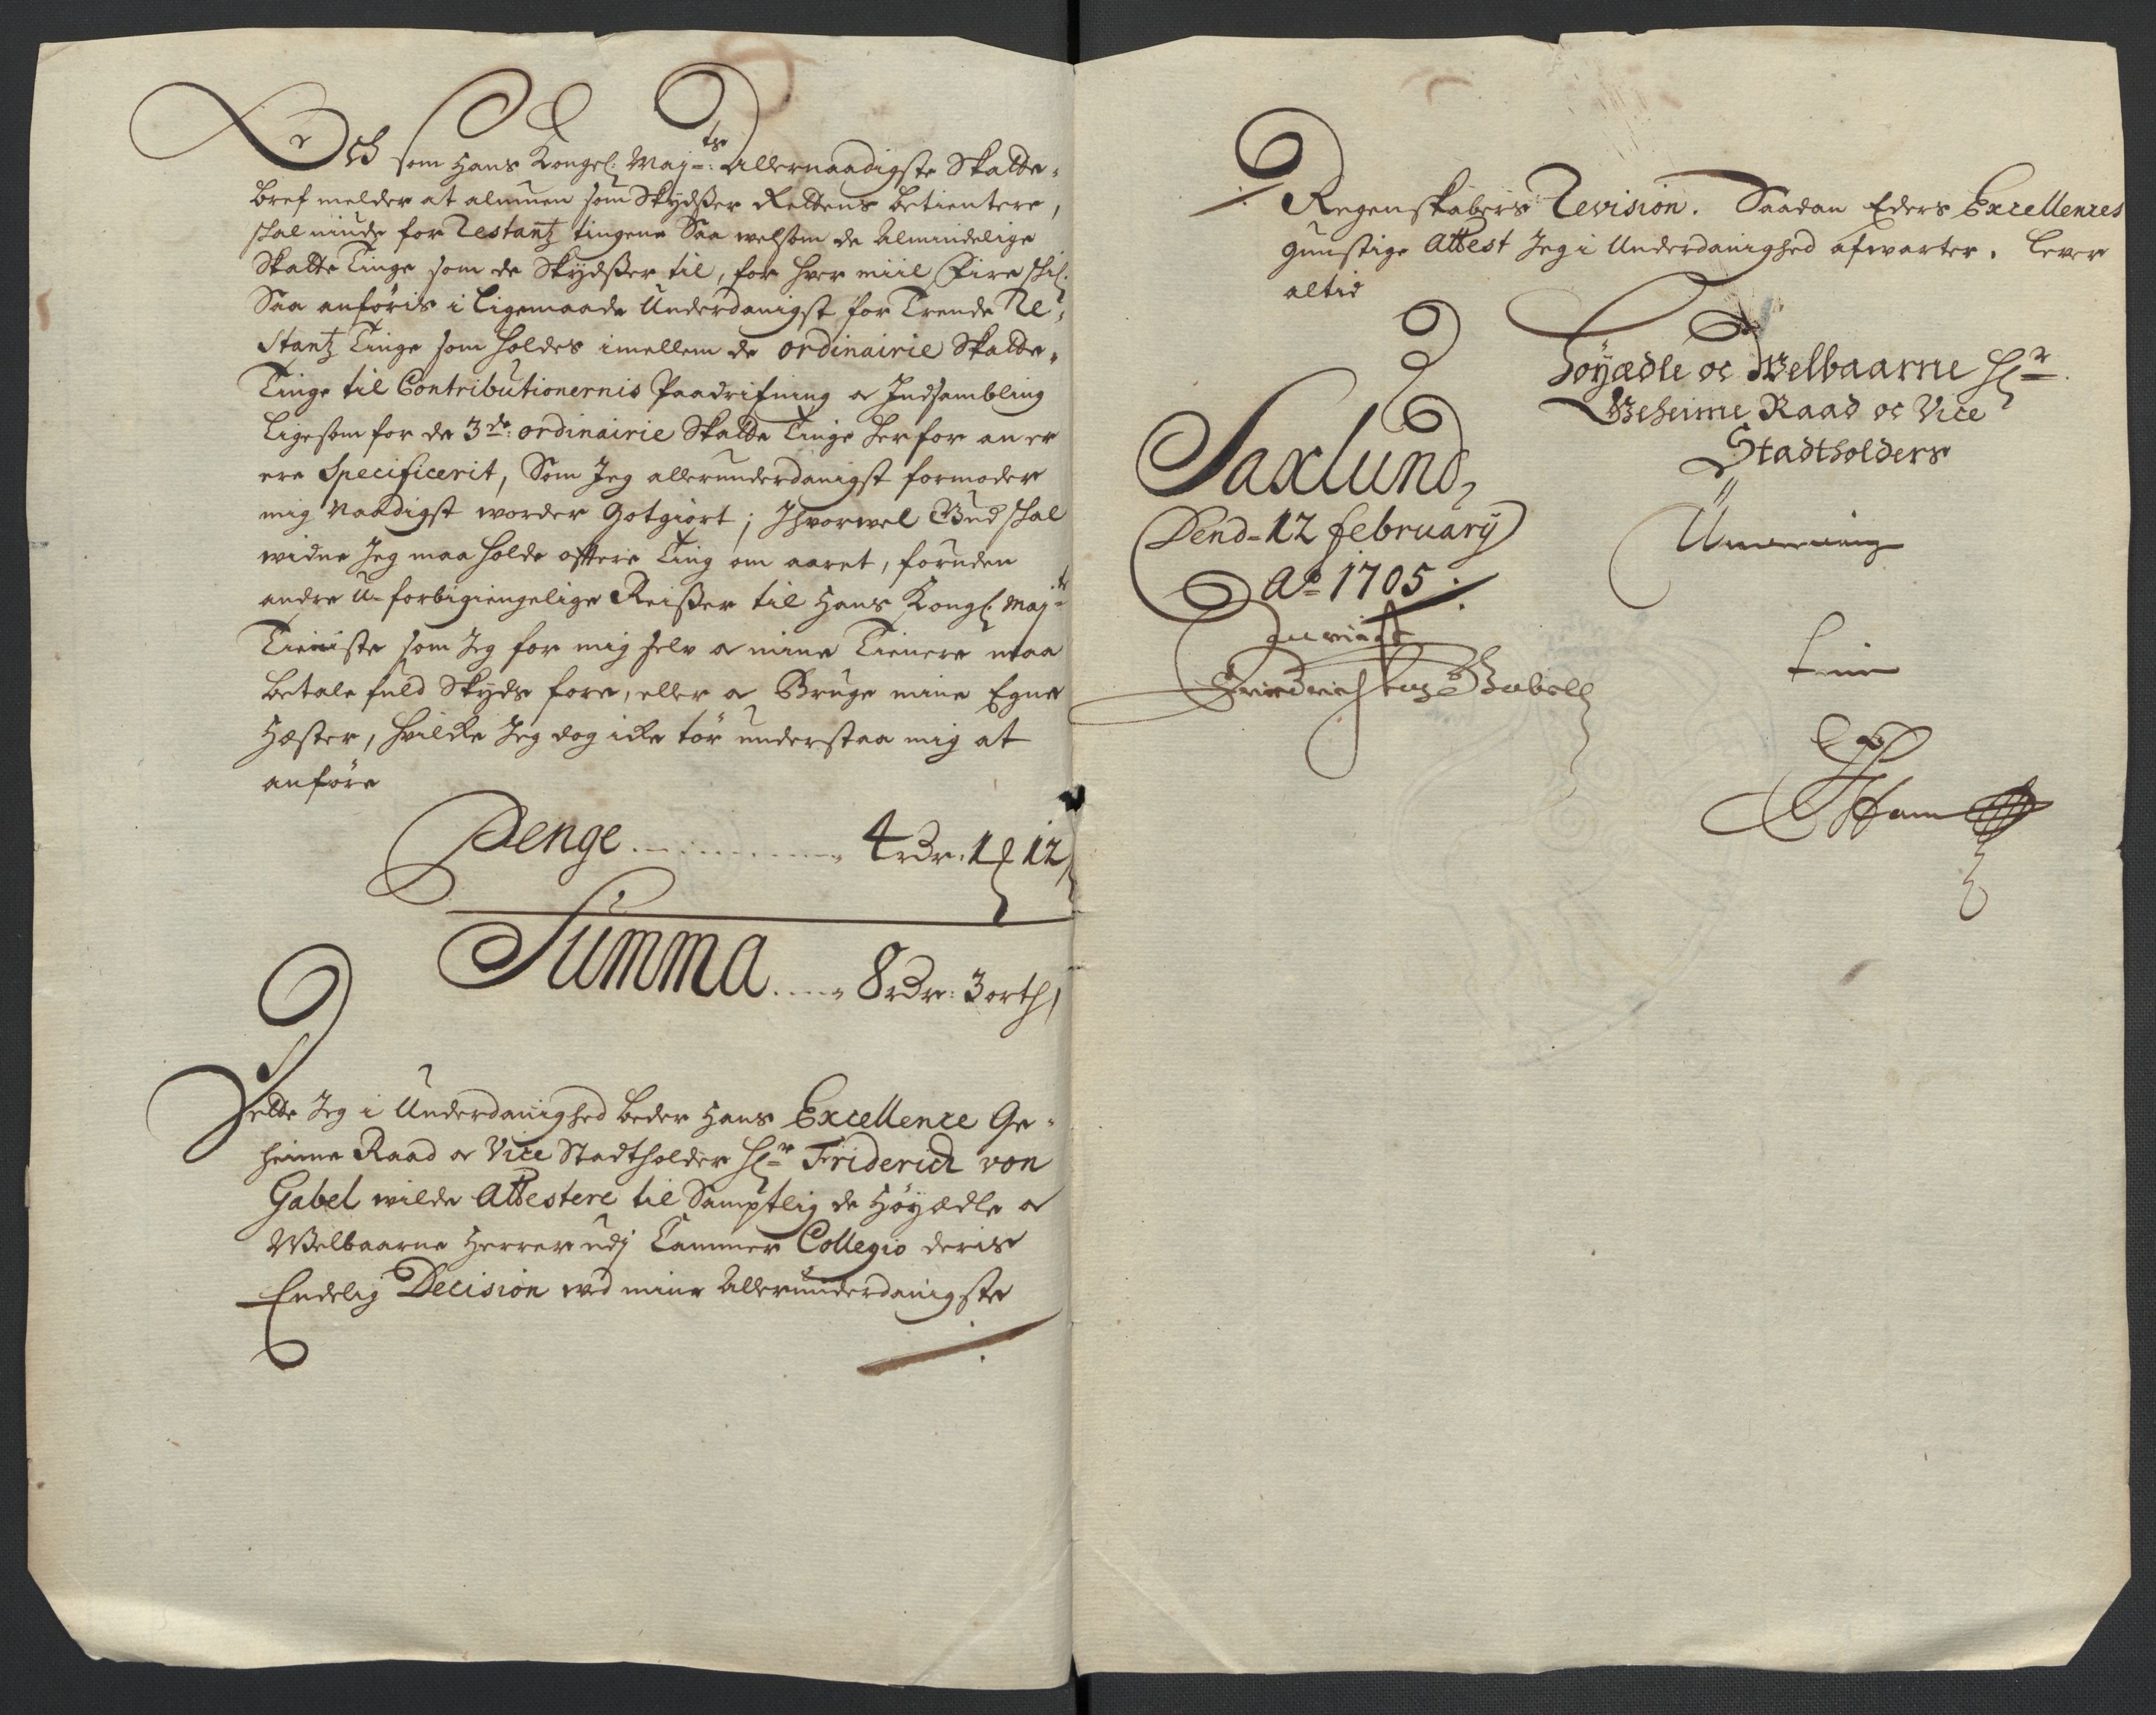 Och som Hans Kongel: Maj:ts Allernaadigste Skatte-
bref melder at almuen som Skydsser Rettens betientere,
skal niude for Restantz tingene Saa welsom de Almindelige
Skatte Tinge som de Skydsser til, for hver miil Fire skil:
Saa anföris i ligemaade Underdanigst for Trende Re-
stantz Tinge som holdes imellem de ordinairie Skatte-
Tinge til Contributionernis Paadrifning oc Indsambling
ligesom for de 3de: ordinairie Skatte Tinge her for an er
ere Specificerit, Som Jeg allerunderdanigst formoder
mig Naadigst worder Gotgiört; Ihvorwel Gud skal
widne Jeg maa holde oftere Ting om aaret, foruden
andre U-forbigiengelige Reisser til Hans Kongl: Maj:ts
Tieniste som Jeg for mig selv oc mine Tienere maa
betale fuld Skyds fore, eller oc Bruge mine Egne
Hæster, hvilcke Jeg dog icke tör understaa mig at
anföre
Penge ........... 4 rdr: 1 12
Summa .... 8 rdr: 3 orth
Dette Jeg i Underdanighed beder Hans Excellence Ge-
heime Raad oc Vice Stadtholder Hr Friderich von
Gabel wilde Attestere til Samptlig de Höyædle oc
Welbaarne Herrer udj Cammer Collegio deris
Endelig Decision wed mine Allerunderdanigste
Regenskabers Revision. Saadan Eders Excellences
gunstige Attest Jeg i Underdanighed afwarter. lever
altid
Höyædle oc Welbaarne Hr
Geheime Raad oc Vice
Stadtholders
Saxlund,
Dend 12 february
Ao 1705